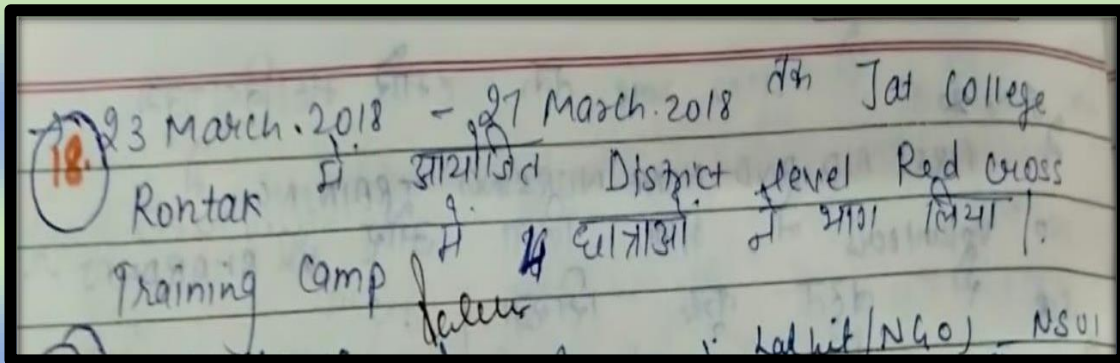 18. 23 March. 2018 - 27 March. 2018 तक Jat College
Rohtak में आयोजित District level Red cross
Training camp में 4 छात्राओं ने भाग लिया।
(NGO) NSUI